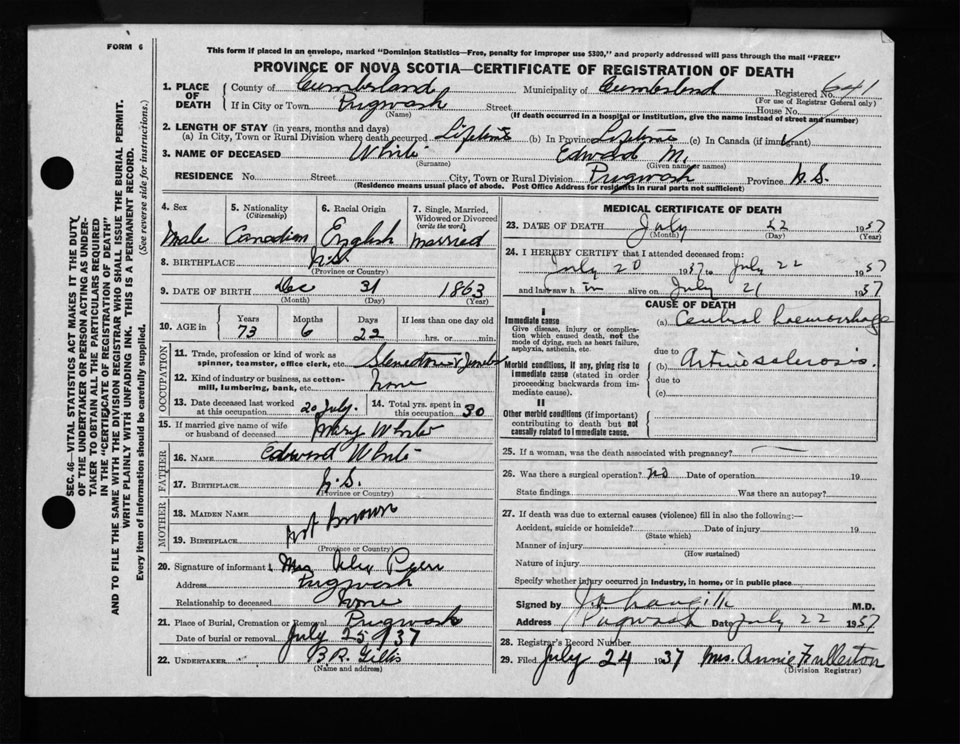 FORM 6
This form if placed in an envelope, marked "Dominion Statistics—Free, penalty for improper use $300," and properly addressed will pass through the mail "FREE"
PROVINCE OF NOVA SCOTIA—CERTIFICATE OF REGISTRATION OF DEATH
1. PLACE OF DEATH
County of Cumberland Municipality of Cumberland Registered No. 641
(For use of Registrar General only)
If in City or Town Pugwash Street House No.
(Name) (If death occurred in a hospital or institution, give the name instead of street and number)
2. LENGTH OF STAY (in years, months and days)
(a) In City, Town or Rural Division where death occurred Lifetime (b) In Province Lifetime (c) In Canada (if immigrant)
3. NAME OF DECEASED White Edward M.
(Surname) (Given name or names)
RESIDENCE No. Street City, Town or Rural Division Pugwash Province N.S.
(Residence means usual place of abode. Post Office Address for residents in rural parts not sufficient)
4. Sex 5. Nationality (Citizenship) 6. Racial Origin 7. Single, Married, Widowed or Divorced (write the word)
Male Canadian English Married
8. BIRTHPLACE N.S.
(Province or Country)
9. DATE OF BIRTH Dec 31 1863
(Month) (Day) (Year)
10. AGE in Years Months Days If less than one day old
73 6 22 hrs. or min.
OCCUPATION
11. Trade, profession or kind of work as spinner, teamster, office clerk, etc.
12. Kind of industry or business, as cotton-mill, lumbering, bank, etc. None
13. Date deceased last worked at this occupation 20 July. 14. Total yrs. spent in this occupation 30
15. If married give name of wife or husband of deceased Mary White
FATHER
16. NAME Edward White
17. BIRTHPLACE N.S.
(Province or Country)
MOTHER
18. MAIDEN NAME
not known
19. BIRTHPLACE
(Province or Country)
20. Signature of informant Mrs
Address Pugwash
Relationship to deceased None
21. Place of Burial, Cremation or Removal Pugwash
Date of burial or removal July 25 1937
22. UNDERTAKER B.R. Gillis
(Name and address)
MEDICAL CERTIFICATE OF DEATH
23. DATE OF DEATH July 22 1937
(Month) (Day) (Year)
24. I HEREBY CERTIFY that I attended deceased from:
July 20 1937 to July 22 1937
and last saw h im alive on July 21 1937
CAUSE OF DEATH
I
Immediate cause
Give disease, injury or complication which caused death, not the mode of dying, such as heart failure, asphyxia, asthenia, etc.
(a) Cerebral haemorrhage
due to
Morbid conditions, if any, giving rise to immediate cause (stated in order proceeding backwards from immediate cause).
(b) Arteriosclerosis.
due to
(c)
II
Other morbid conditions (if important) contributing to death but not causally related to immediate cause.
25. If a woman, was the death associated with pregnancy?
26. Was there a surgical operation? no Date of operation 19
State findings Was there an autopsy?
27. If death was due to external causes (violence) fill in also the following:—
Accident, suicide or homicide? Date of injury 19
(State which)
Manner of injury
(How sustained)
Nature of injury
Specify whether injury occurred in industry, in home, or in public place
Signed by M.D.
Address Pugwash Date July 22 1937
28. Registrar's Record Number
29. Filed July 24 1937 Mrs. Annie Fullerton
(Division Registrar)
SEC. 46—VITAL STATISTICS ACT MAKES IT THE DUTY
OF THE UNDERTAKER OR PERSON ACTING AS UNDER-
TAKER TO OBTAIN ALL THE PARTICULARS REQUIRED
IN THE "CERTIFICATE OF REGISTRATION OF DEATH"
AND TO FILE THE SAME WITH THE DIVISION REGISTRAR WHO SHALL ISSUE THE BURIAL PERMIT.
WRITE PLAINLY WITH UNFADING INK. THIS IS A PERMANENT RECORD.
Every item of information should be carefully supplied. (See reverse side for instructions.)